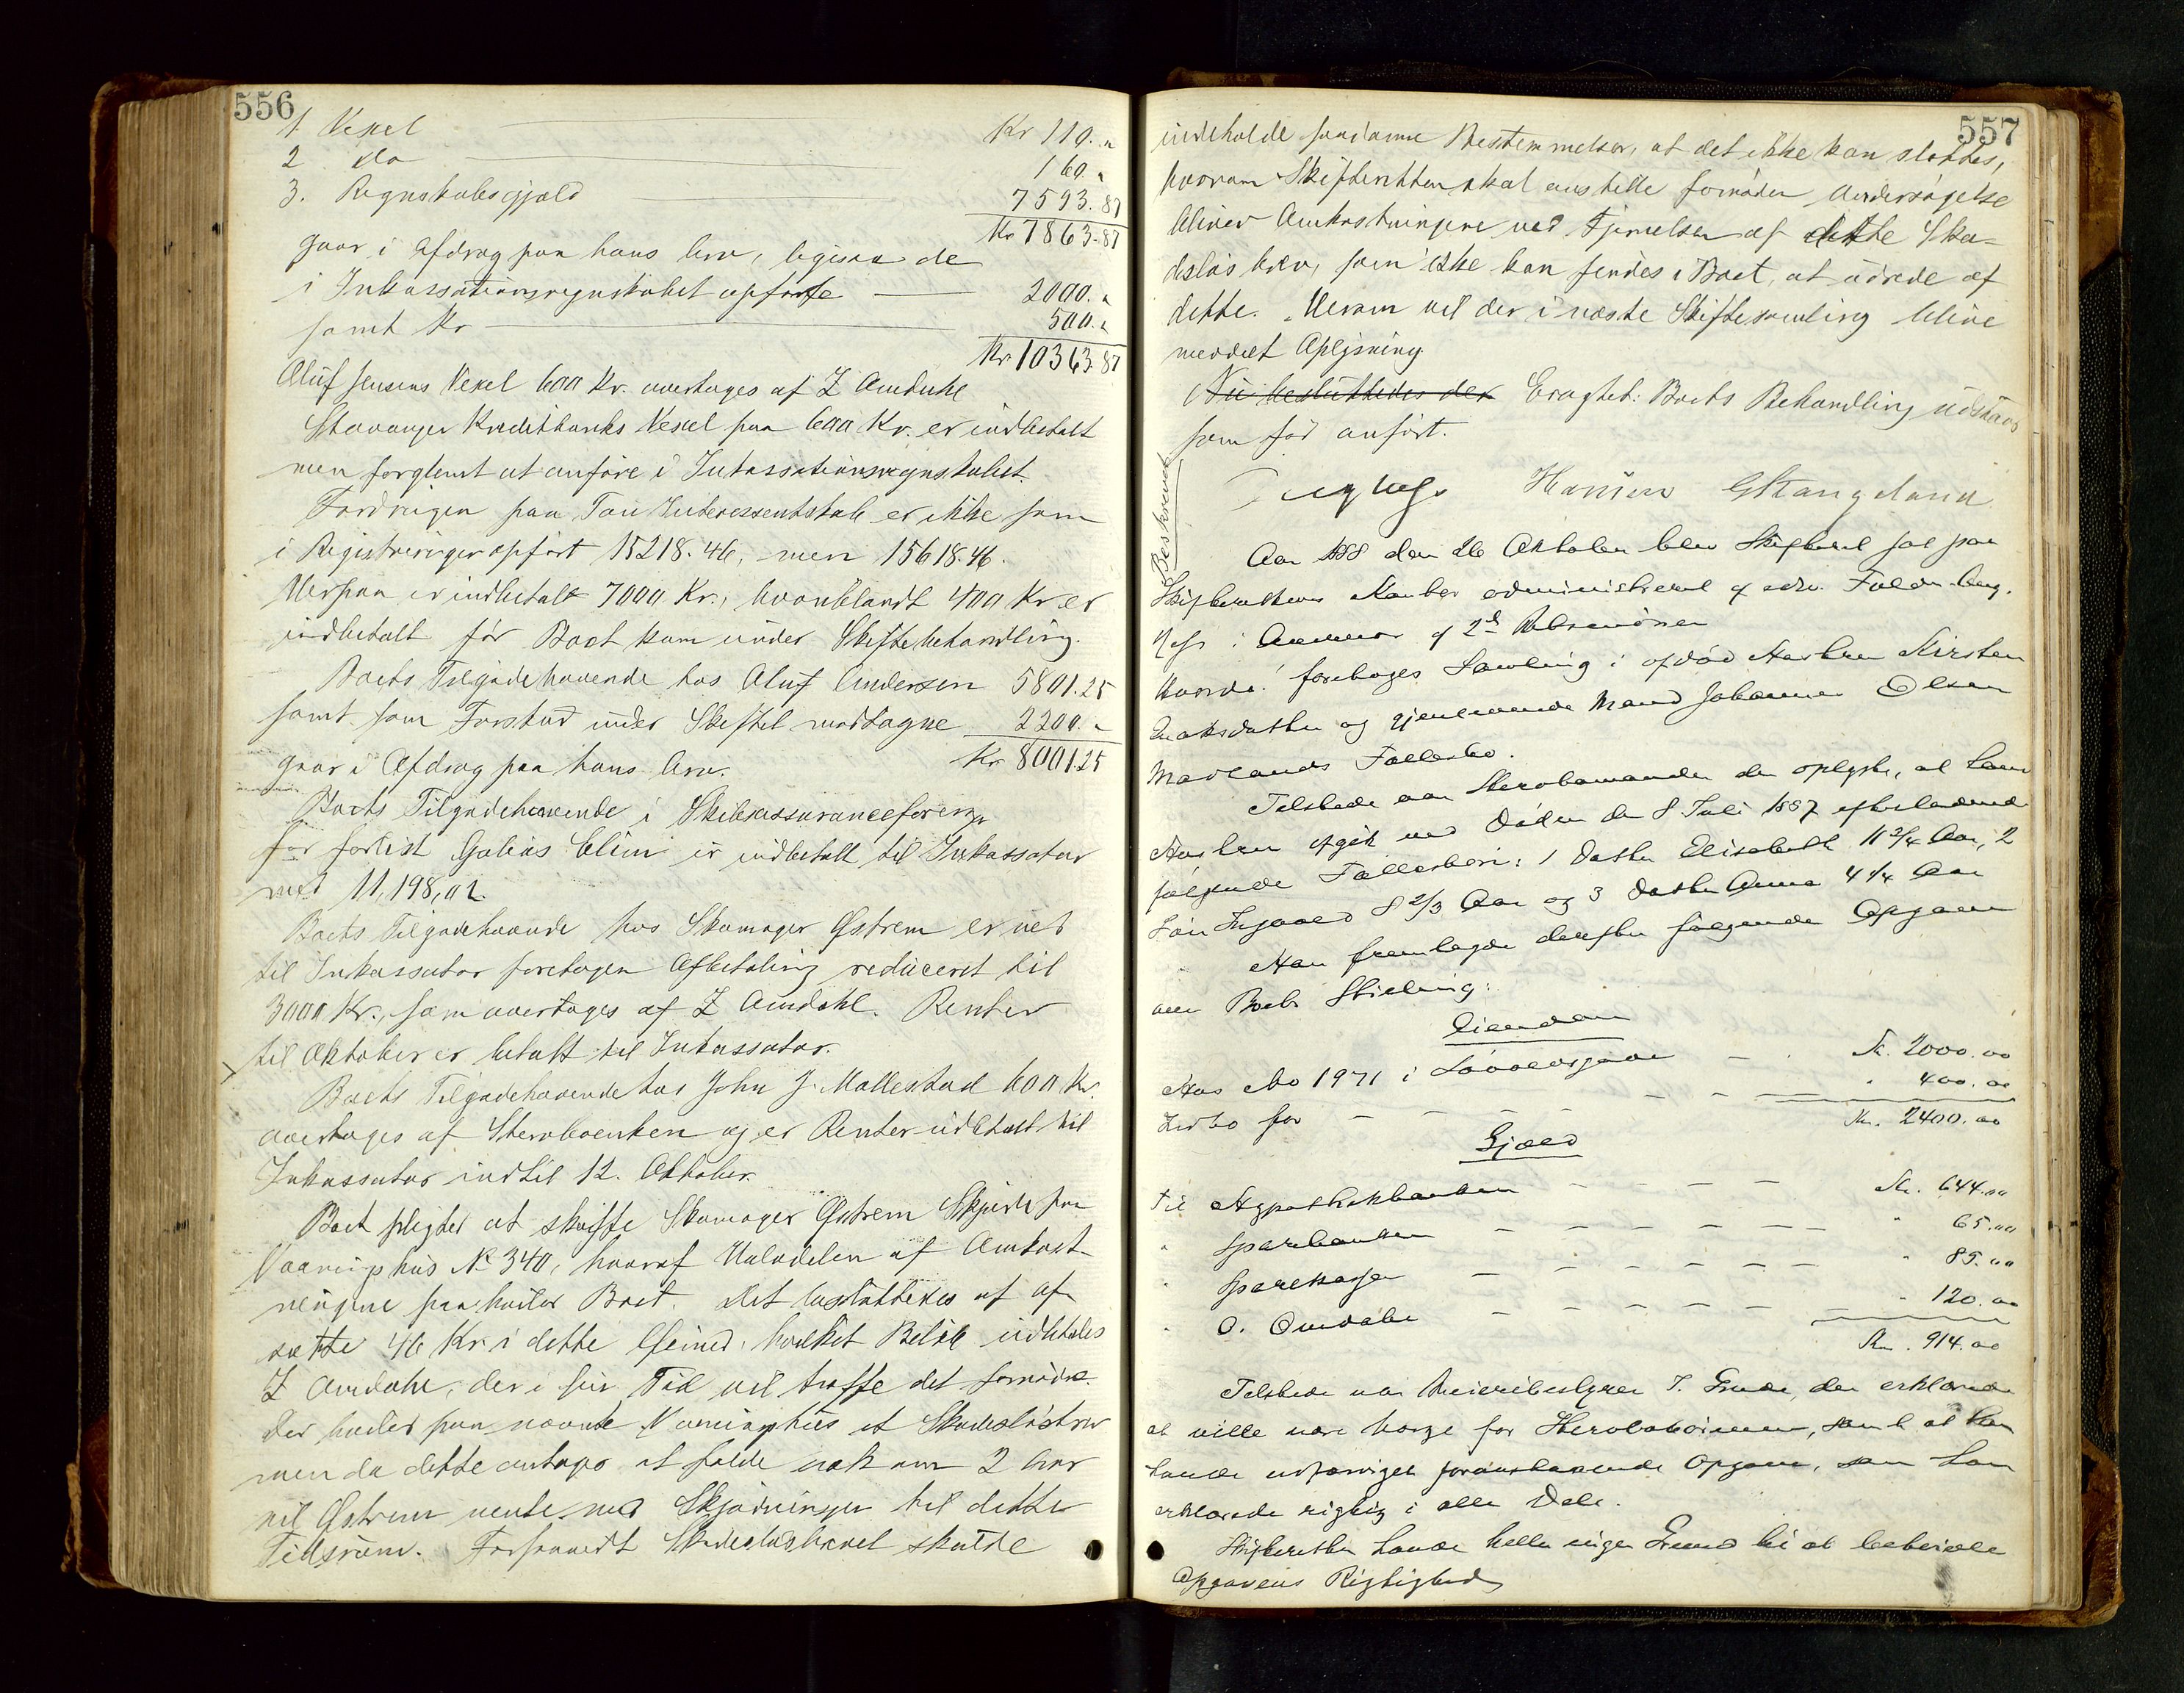 556
1 Vexel Kr 110. "
2 do 160. "
3. Regnskabsgjæld 7593.87
Kr 7863.87
gaar i Afdrag paa hans Arv, ligesaa de
i Inkassationsregnskabet opførte 2000. "
samt Kr 500. "
Kr 10363.87
Oluf Jensens Vexel 600 Kr. overtages af Z Omdahl
Stavanger Kreditbanks Vexel paa 600 Kr. er indbetalt
men forglemt at anføre i Inkassationsregnskabet.
Fordringen paa Tou Interessentskab er ikke som
i Registreringen opført 15218.46, men 15618.46.
Herpaa er indbetalt 7000 Kr., hvoriblandt 400 Kr. er
indbetalt før Boet kom under Skiftebehandling.
Boets Tilgodehavende hos Oluf Andersen 5801.25
samt som Forskud under Skiftet modtagne 2200. "
gaar i Afdrag paa hans Arv. Kr 8001.25
Boets Tilgodehavende i Skibsassuranceforeng.
for forlist Galias Elim er indbetalt til Inkassator
med 11,198,02.
Boets Tilgodehavende hos Skomager Østrem er ved
til Inkassator foretagen Afbetaling reduceret til
3000 Kr., som overtages af Z Omdahl. Renter
til Oktober er betalt til Inkassator.
Boets Tilgodehavende hos John J. Mollestad 600 Kr.
overtages af Stervboenken og er Renter udbetalt til
Inkassator indtil 12. Oktober.
Boet pligter at skaffe Skomager Østrem Skjøde paa
Vaaningshus No 340, hvoraf Halvdelen af Omkost-
ningerne paahviler Boet. Det besluttedes at af-
sætte 46 Kr. i dette Øiemed, hvilket Beløb udbetales
Z Omdahl, der i sin Tid vil træffe det fornødne.
Der hviler paa nævnte Vaaningshus et Skadesløsbrev
men da dette antages at falde væk om 2 Aar
vil Østrem vente med Skjødningen til dette
Tidsrum. Forsaavidt Skadesløsbrevet skulde
557
indeholde saadanne Bestemmelser, at det ikke kan slettes,
hvorom Skifteretten skal anstille fornøden Undersøgelse
bliver Omkostningerne ved Fjernelsen af dette Ska-
desløsbrev, som ikke kan findes i Boet, at udrede af
dette. Herom vil der i næste Skiftesamling blive
meddelt Oplysning.
Nu besluttedes der Eragtet: Boets Behandling udstaar
som før anført.
Hansen GStangeland
Beskrevet
Aar 1888 den 26 Oktober blev Skifteret sat paa
Skifterettens Kontor administreret af edsv. Fuldm. Aug.
i Overvær af 2de Vidner
Hvorda! foretages Samling i afdød Hustru Kirsten
Enoksdatter og gjenlevende Mand Johannes Olsen
Mavlands Fællesbo.
Tilstede var Stervbomanden der oplyste, at hans
Hustru afgik ved Døden den 8 Juli 1887 efterladende
følgende Fællesbørn: 1 Datter Elisabeth 11 3/4 Aar, 2
Søn Ingvald 8 2/3 Aar og 3 Datter Anna 4 1/4 Aar
Han fremlagde derefter følgende Opgave
over Boets Stilling:
Eiendom
Hus No 1971 i Løvoldsgade Kr. 2000.00
Indbo for " 400.00
Kr. 2400.00
Gjæld
til Hypothekbanken Kr. 644.00
" Sparebanken " 65.00
" Sparekassen " 85.00
" O. Omdahl " 120.00
Kr. 914.00
Tilstede var Meieribestyrer T. Grude, der erklærede
at ville være Værge for Stervbobørnene, samt at han
havde udfærdiget foranstaaende Opgave, som han
erklærede rigtig i alle Dele.
Skifteretten havde heller ingen Grund til at betvivle
Opgavens Rigtighed